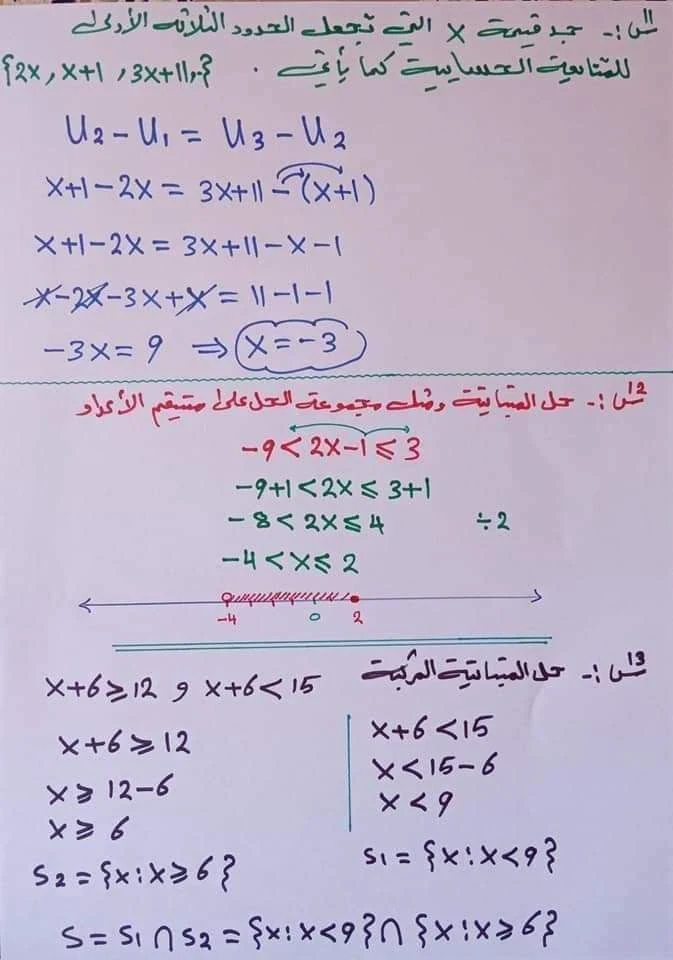 س11 :- جد قيمة x التي تجعل الحدود الثلاثة الأولى
للمتتابعة الحسابية كما يأتي . {2x, x+1, 3x+11, ..}
U2 - U1 = U3 - U2
x+1-2x = 3x+11-(x+1)
x+1-2x = 3x+11-x-1
x-2x-3x+x = 11-1-1
-3x = 9 ⇒ x = -3
س12 :- حل المتباينة ومثل مجموعة الحل على مستقيم الأعداد
-9 < 2x-1 ≤ 3
-9+1 < 2x ≤ 3+1
-8 < 2x ≤ 4 ÷2
-4 < x ≤ 2
-4 0 2
س13 :- حل المتباينة المركبة
x+6 ≥ 12 و x+6 < 15
x+6 < 15
x < 15-6
x < 9
S1 = {x : x < 9}
x+6 ≥ 12
x ≥ 12-6
x ≥ 6
S2 = {x : x ≥ 6}
S = S1 ∩ S2 = {x : x < 9} ∩ {x : x ≥ 6}